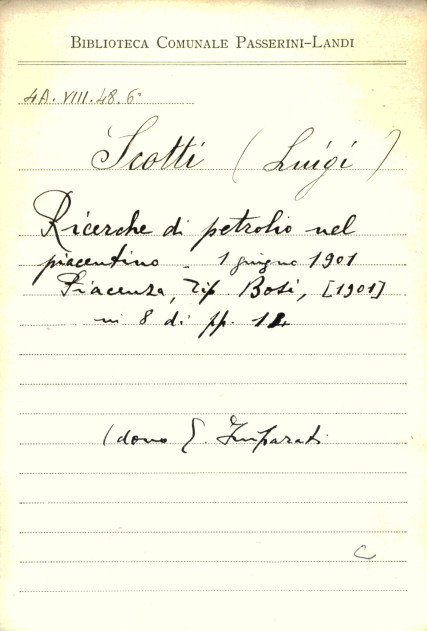 BIBLIOTECA COMUNALE PASSERINI-LANDI
4A. VIII. 48. 6°
Scotti (Luigi)
Ricerche di petrolio nel
piacentino - 1 giugno 1901
Piacenza, Tip. Bosi, [1901]
in 8 di pp. 14
(dono E. Imparati
C